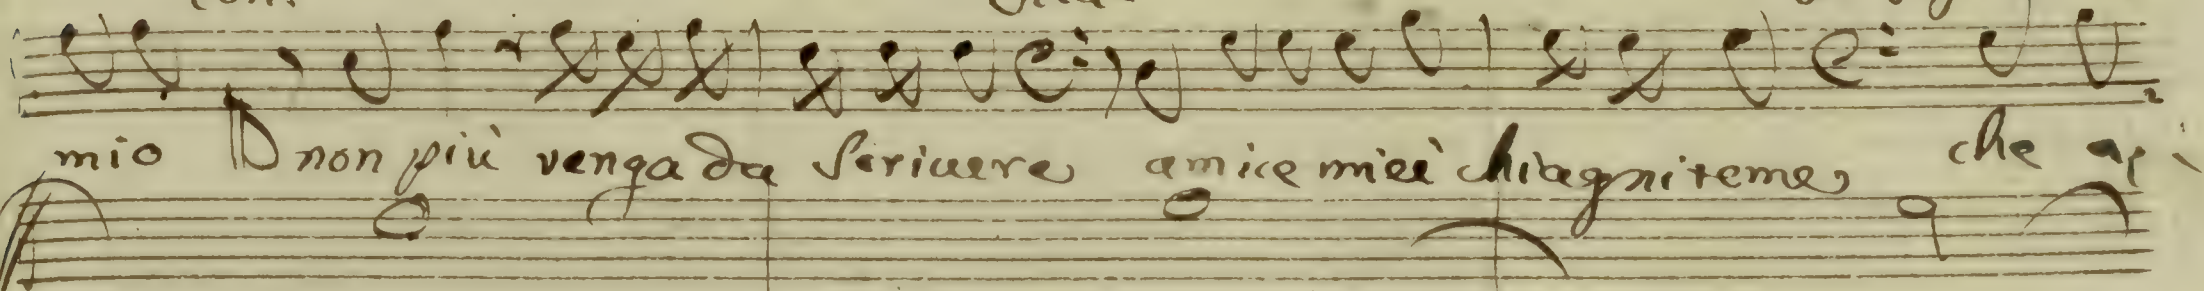 mio non più venga da scriuere amice miei chiagniteme che